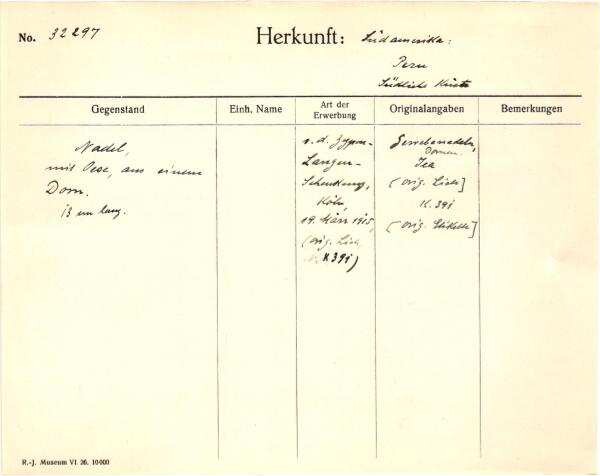 No. 32297
Herkunft: Südamerika:
Peru
Südliche Küste
Gegenstand
Einh. Name
Art der Erwerbung
Originalangaben
Bemerkungen
Nadel,
mit Oese, aus einem
Dorn.
13 cm lang.
v. d. Zypen-
Langen-
Schenkung,
Köln,
19. März 1915,
(orig. List.
K 391)
Gewebenadeln,
Dornen.
Ica
(orig. Liste]
K. 391
(orig. Etikette]
R.-J. Museum VI. 26. 10000